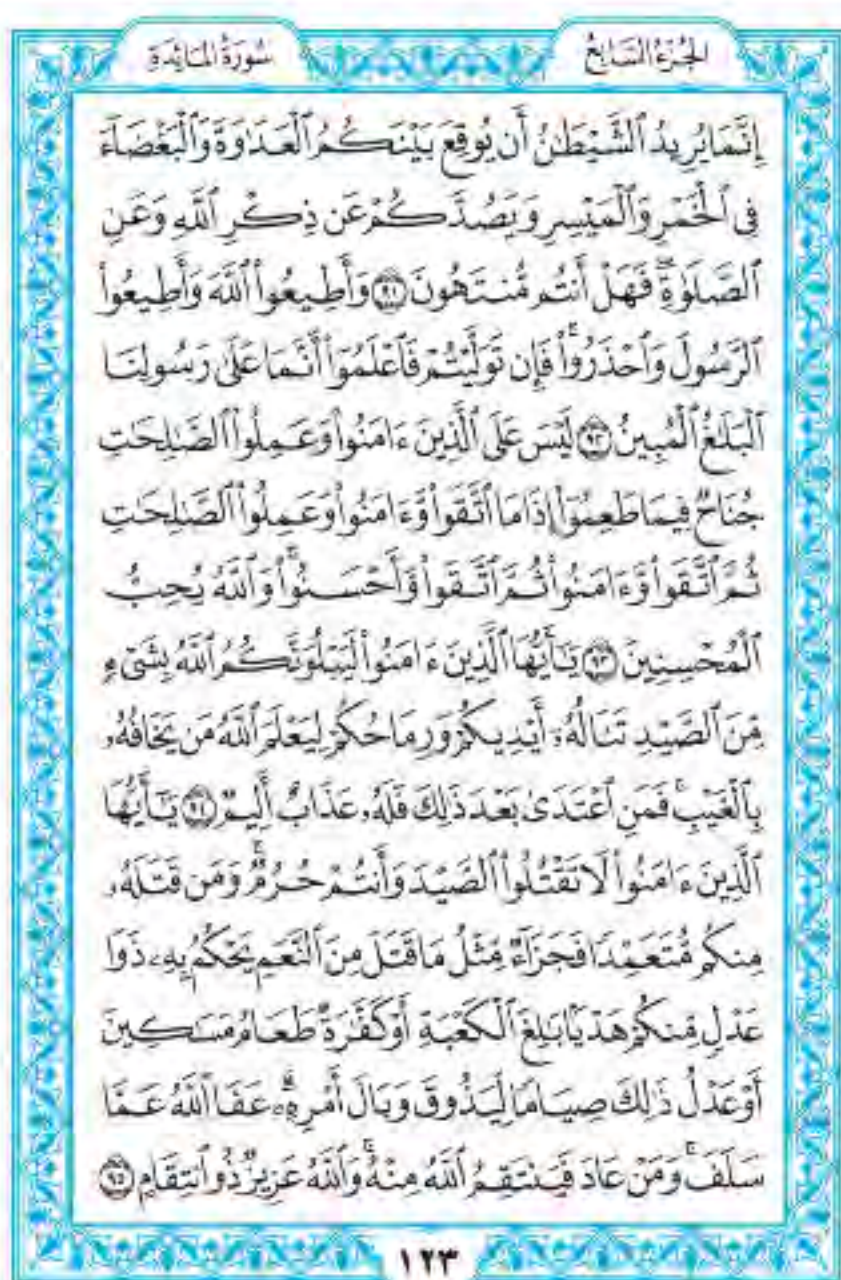 الجزء السابع
سورة المائدة
إِنَّمَا يُرِيدُ ٱلشَّيْطَٰنُ أَن يُوقِعَ بَيْنَكُمُ ٱلْعَدَٰوَةَ وَٱلْبَغْضَآءَ
فِى ٱلْخَمْرِ وَٱلْمَيْسِرِ وَيَصُدَّكُمْ عَن ذِكْرِ ٱللَّهِ وَعَنِ
ٱلصَّلَوٰةِ ۖ فَهَلْ أَنتُم مُّنتَهُونَ ۝٩١ وَأَطِيعُوا۟ ٱللَّهَ وَأَطِيعُوا۟
ٱلرَّسُولَ وَٱحْذَرُوا۟ ۚ فَإِن تَوَلَّيْتُمْ فَٱعْلَمُوٓا۟ أَنَّمَا عَلَىٰ رَسُولِنَا
ٱلْبَلَٰغُ ٱلْمُبِينُ ۝٩٢ لَيْسَ عَلَى ٱلَّذِينَ ءَامَنُوا۟ وَعَمِلُوا۟ ٱلصَّٰلِحَٰتِ
جُنَاحٌ فِيمَا طَعِمُوٓا۟ إِذَا مَا ٱتَّقَوا۟ وَّءَامَنُوا۟ وَعَمِلُوا۟ ٱلصَّٰلِحَٰتِ
ثُمَّ ٱتَّقَوا۟ وَّءَامَنُوا۟ ثُمَّ ٱتَّقَوا۟ وَّأَحْسَنُوا۟ ۗ وَٱللَّهُ يُحِبُّ
ٱلْمُحْسِنِينَ ۝٩٣ يَٰٓأَيُّهَا ٱلَّذِينَ ءَامَنُوا۟ لَيَبْلُوَنَّكُمُ ٱللَّهُ بِشَىْءٍ
مِّنَ ٱلصَّيْدِ تَنَالُهُۥٓ أَيْدِيكُمْ وَرِمَاحُكُمْ لِيَعْلَمَ ٱللَّهُ مَن يَخَافُهُۥ
بِٱلْغَيْبِ ۚ فَمَنِ ٱعْتَدَىٰ بَعْدَ ذَٰلِكَ فَلَهُۥ عَذَابٌ أَلِيمٌ ۝٩٤ يَٰٓأَيُّهَا
ٱلَّذِينَ ءَامَنُوا۟ لَا تَقْتُلُوا۟ ٱلصَّيْدَ وَأَنتُمْ حُرُمٌ ۚ وَمَن قَتَلَهُۥ
مِنكُم مُّتَعَمِّدًا فَجَزَآءٌ مِّثْلُ مَا قَتَلَ مِنَ ٱلنَّعَمِ يَحْكُمُ بِهِۦ ذَوَا
عَدْلٍ مِّنكُمْ هَدْيًۢا بَٰلِغَ ٱلْكَعْبَةِ أَوْ كَفَّٰرَةٌ طَعَامُ مَسَٰكِينَ
أَوْ عَدْلُ ذَٰلِكَ صِيَامًا لِّيَذُوقَ وَبَالَ أَمْرِهِۦ ۗ عَفَا ٱللَّهُ عَمَّا
سَلَفَ ۚ وَمَنْ عَادَ فَيَنتَقِمُ ٱللَّهُ مِنْهُ ۗ وَٱللَّهُ عَزِيزٌ ذُو ٱنتِقَامٍ ۝٩٥
١٢٣